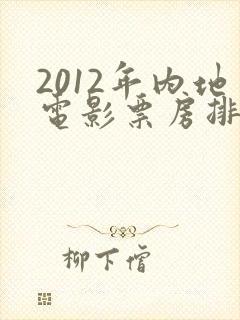 2012年内地
電影票房排
柳下僧